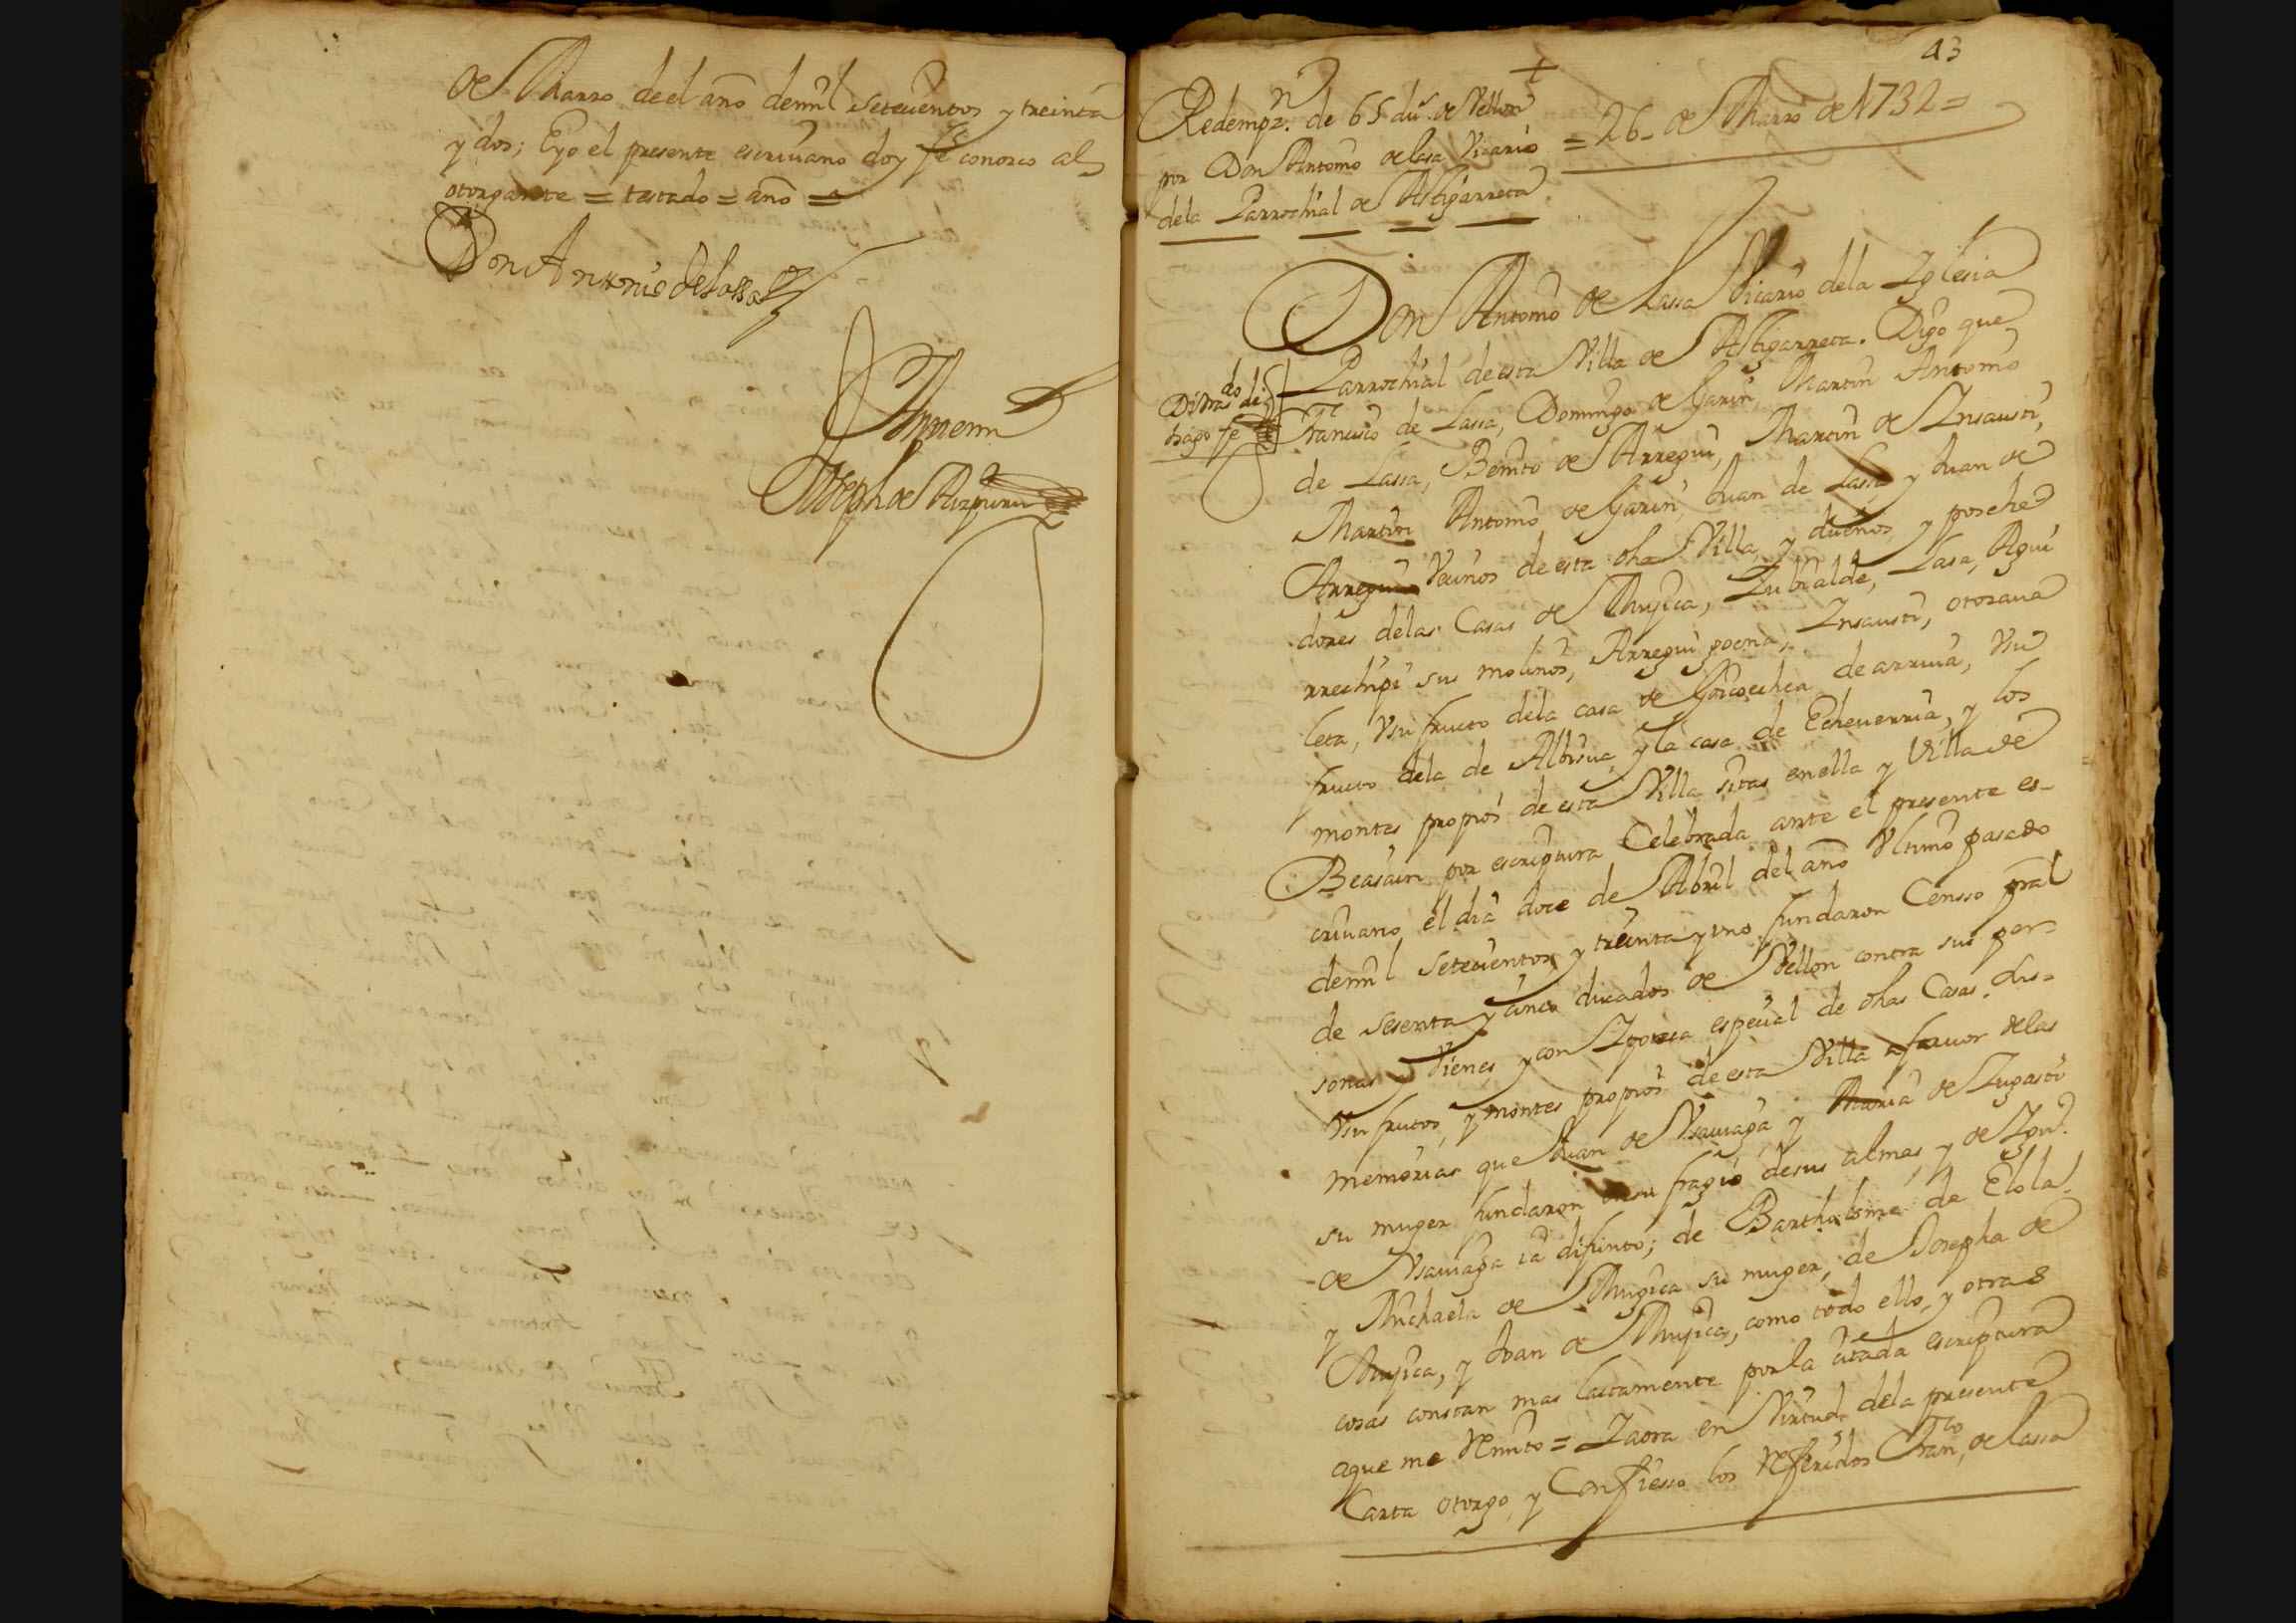 de Marzo de el año demil setecientos y treinta
y dos; E yo el presente escriuano doy fe conozco al
otorgante = testado = año =
Don Antonio de Lassa
Ante mi
Joseph de Aizpuru
43
+
Redempzn. de 65 dus. de Vellon
por Don Antonio de lasa Vicario
dela Parrochial de Astigarreta
= 26 - de Marzo de 1732 =
Don Antonio de Lassa Vicario dela Iglesia
Parrochial de esta Villa de Astigarreta. Digo que
do de
hago fe
Francisco de Lassa, Domingo de Garin, Martin Antonio
de Lassa, Benito de Arregui, Martin de Insausti,
Martin Antonio de Garin, Juan de Lassa y Juan de
Arregui Vecinos de esta dha Villa, y dueños, y poshe
dores delas Casas de Mujica, Zubialde, Lasa, Agui
rrechipi sus molinos, Arregui goena, Insausti,
leta, Vsufructo dela casa de Goicoechea de arriua, Vsu
fructo dela de Albisua, y la casa de Echeuerria, y los
montes propios de esta Villa sitas en ella y Villa de
Beasain por escriptura Celebrada ante el presente es-
criuano el dia doce de Abril del año Vltimo pasado
demil setecientos y treinta y vno fundaron Censso pral
de sesenta y cinco ducados de Vellon contra sus per-
sonas y Vienes y con Ipoteca especial de dhas Casas, dus-
Vsufrutos, y montes propios de esta Villa a fauor delas
memorias que Juan de Vsauiaga y Maria de Zugasti
su muger fundaron en sufragio de sus almas, y de Igno.
de Vsauiaga ia difunto; de Bartholome de Elola,
y Michaela de Mugica su muger, de Josepha de
Mujica, y Juan de Mujica, como todo ello, y otras
cosas constan mas lactamente por la citada escriptura
aque me Remito = Iaora en Virtud dela presente
Carta otorgo, y Confiesso los Referidos Franco. de lassa